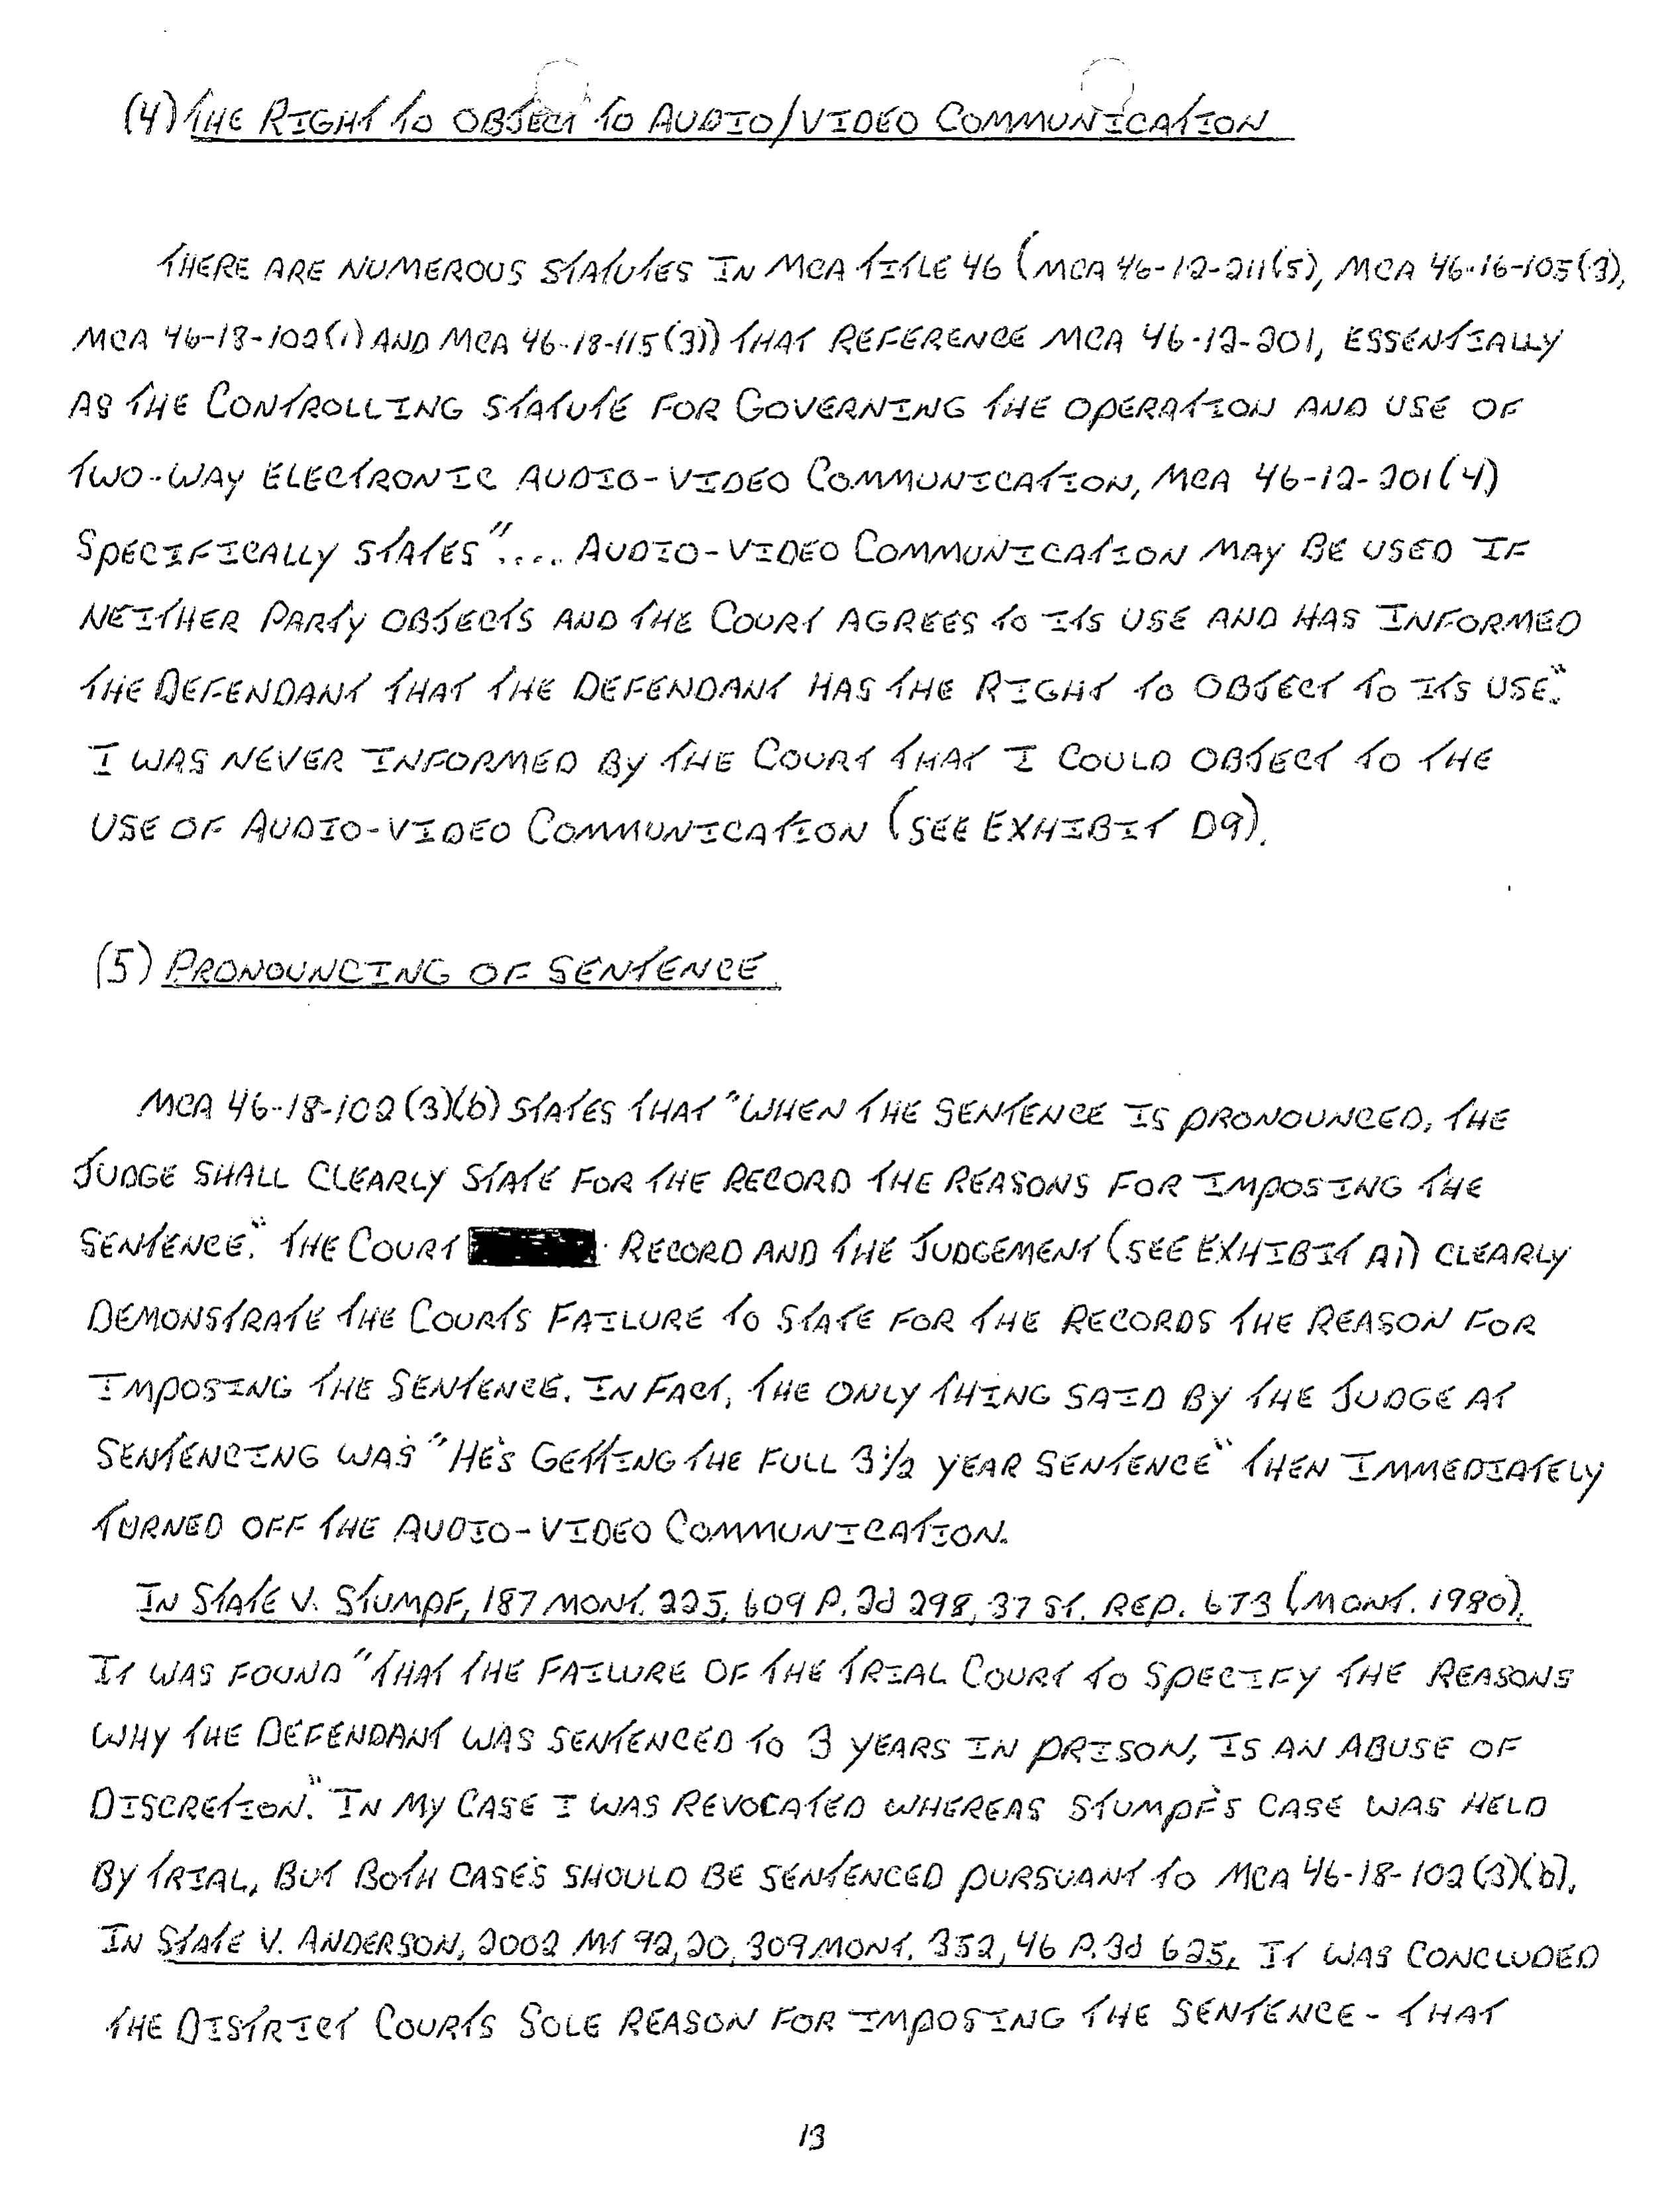 (4) THE RIGHT TO OBJECT TO AUDIO/VIDEO COMMUNICATION
THERE ARE NUMEROUS STATUTES IN MCA TITLE 46 (MCA 46-12-211(5), MCA 46-16-105(3),
MCA 46-18-102(1) AND MCA 46-18-115(3)) THAT REFERENCE MCA 46-12-201, ESSENTIALLY
AS THE CONTROLLING STATUTE FOR GOVERNING THE OPERATION AND USE OF
TWO-WAY ELECTRONIC AUDIO-VIDEO COMMUNICATION, MCA 46-12-201(4)
SPECIFICALLY STATES ".... AUDIO-VIDEO COMMUNICATION MAY BE USED IF
NEITHER PARTY OBJECTS AND THE COURT AGREES TO ITS USE AND HAS INFORMED
THE DEFENDANT THAT THE DEFENDANT HAS THE RIGHT TO OBJECT TO ITS USE."
I WAS NEVER INFORMED BY THE COURT THAT I COULD OBJECT TO THE
USE OF AUDIO-VIDEO COMMUNICATION (SEE EXHIBIT D9).
(5) PRONOUNCING OF SENTENCE
MCA 46-18-102(3)(b) STATES THAT "WHEN THE SENTENCE IS PRONOUNCED, THE
JUDGE SHALL CLEARLY STATE FOR THE RECORD THE REASONS FOR IMPOSING THE
SENTENCE." THE COURT RECORD AND THE JUDGEMENT (SEE EXHIBIT A1) CLEARLY
DEMONSTRATE THE COURTS FAILURE TO STATE FOR THE RECORDS THE REASON FOR
IMPOSING THE SENTENCE. IN FACT, THE ONLY THING SAID BY THE JUDGE AT
SENTENCING WAS "HE'S GETTING THE FULL 3 1/2 YEAR SENTENCE" THEN IMMEDIATELY
TURNED OFF THE AUDIO-VIDEO COMMUNICATION.
IN STATE V. STUMPF, 187 MONT. 225, 609 P.2d 298, 37 ST. REP. 673 (MONT. 1980),
IT WAS FOUND "THAT THE FAILURE OF THE TRIAL COURT TO SPECIFY THE REASONS
WHY THE DEFENDANT WAS SENTENCED TO 3 YEARS IN PRISON, IS AN ABUSE OF
DISCRETION." IN MY CASE I WAS REVOCATED WHEREAS STUMPF'S CASE WAS HELD
BY TRIAL, BUT BOTH CASE'S SHOULD BE SENTENCED PURSUANT TO MCA 46-18-102(3)(b).
IN STATE V. ANDERSON, 2002 MT 92, 20, 309 MONT. 352, 46 P.3d 625, IT WAS CONCLUDED
THE DISTRICT COURTS SOLE REASON FOR IMPOSING THE SENTENCE - THAT
13